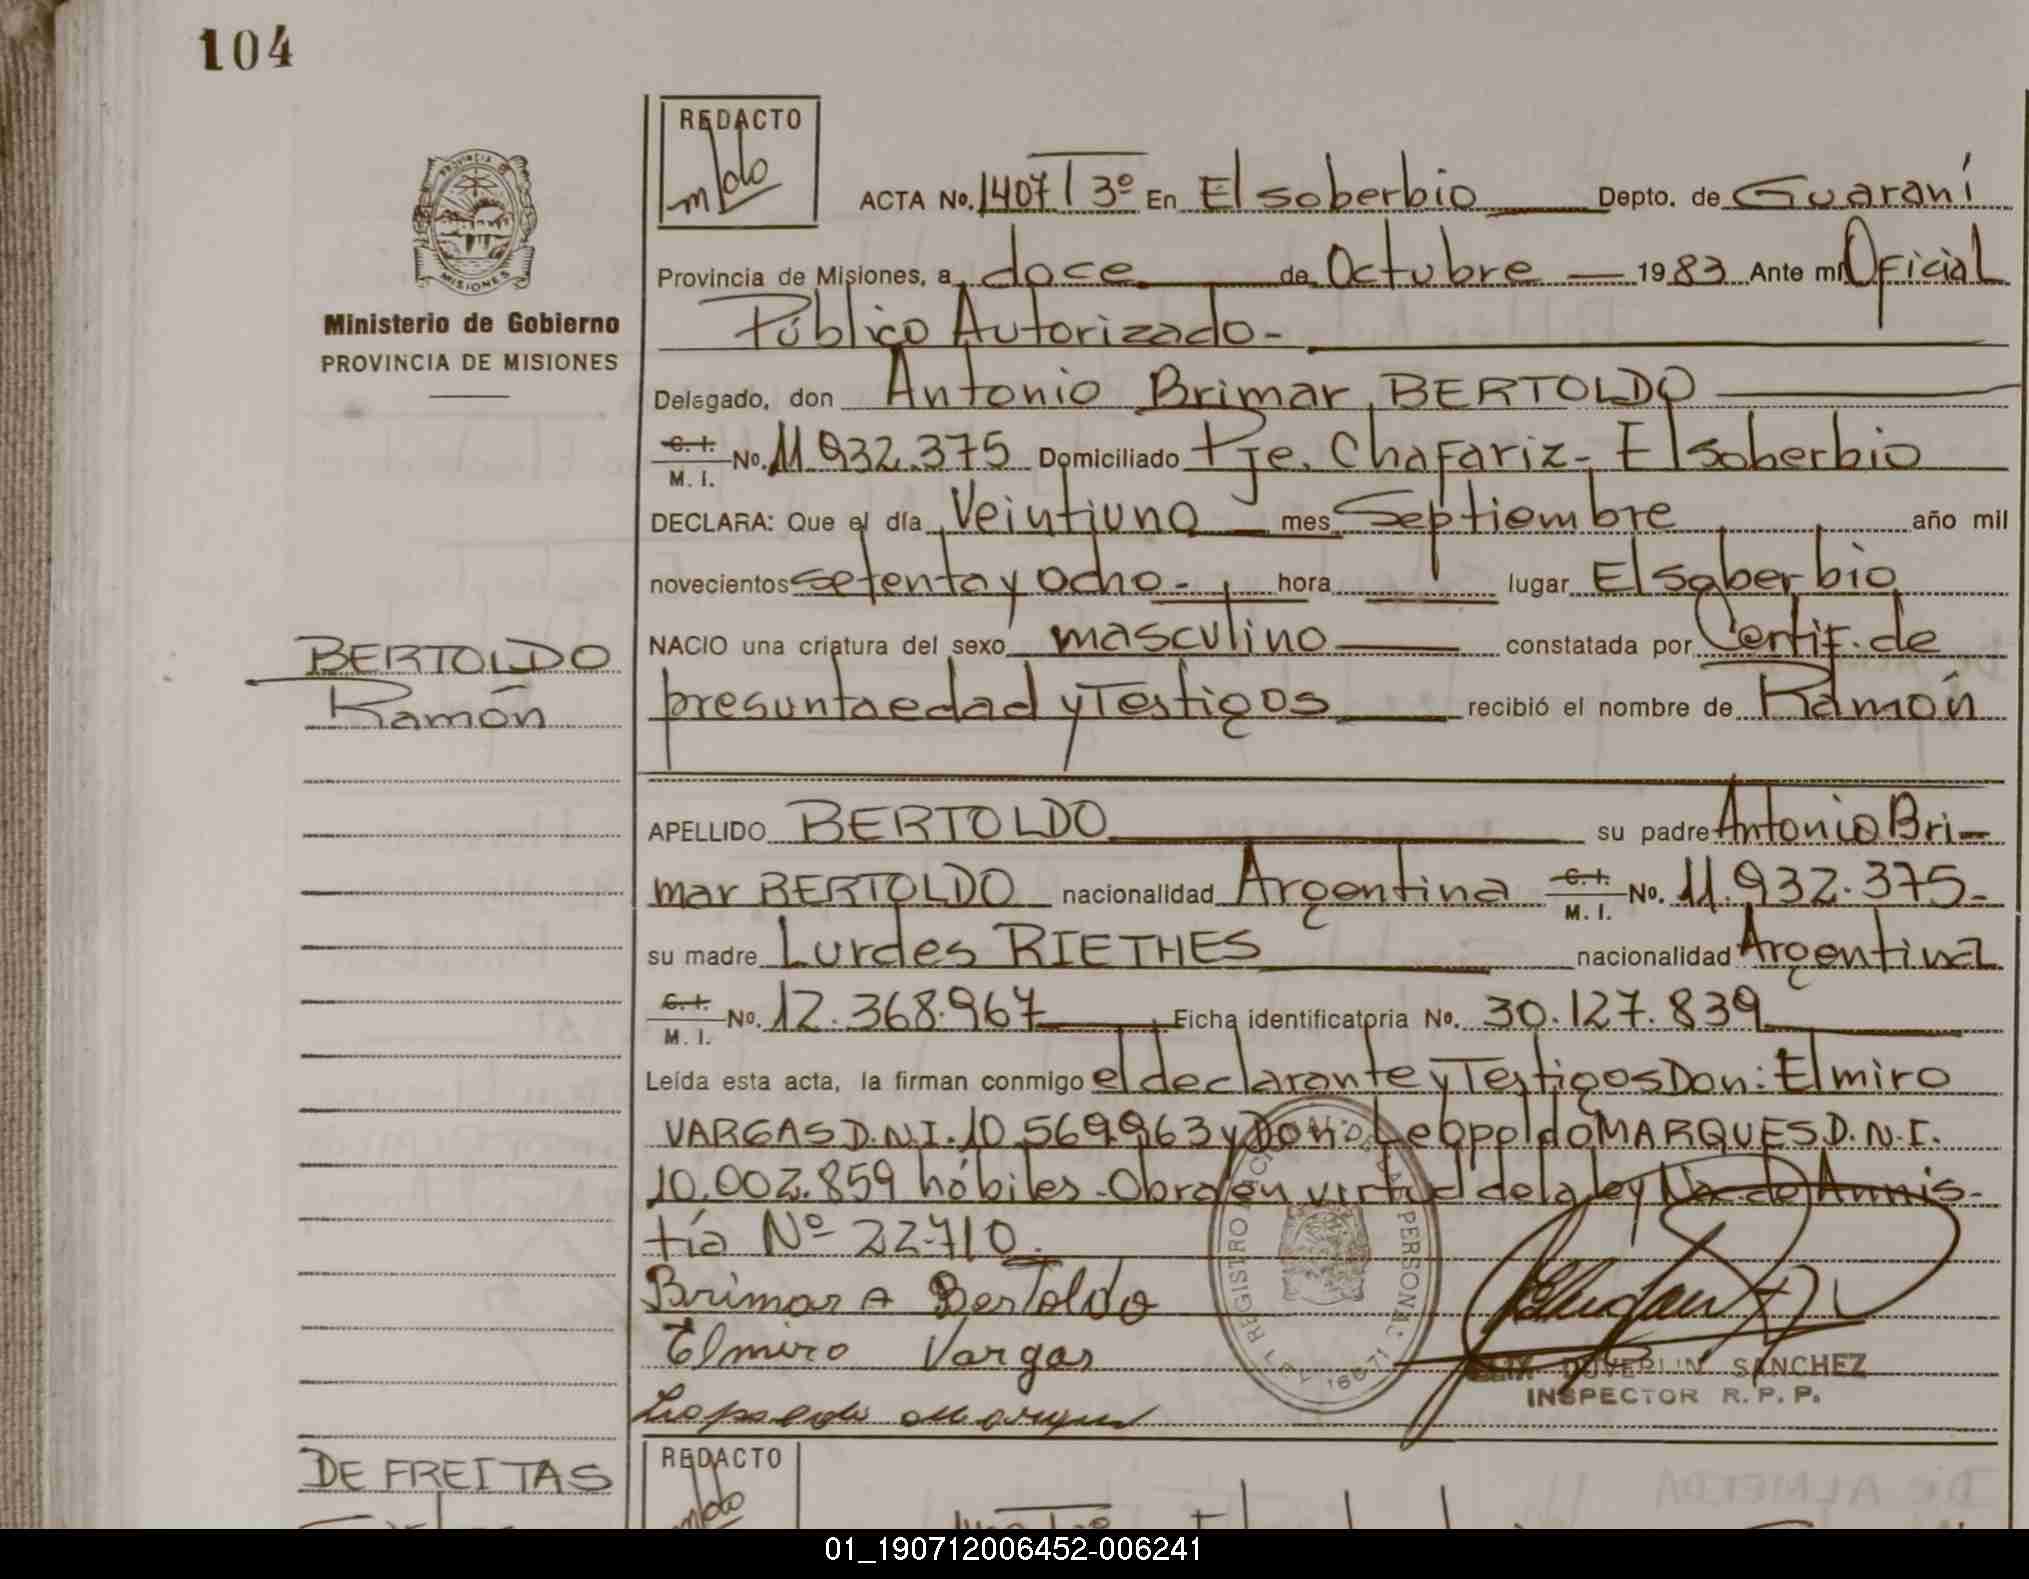 104
REDACTO
ACTA No. 1407 T 3º En El soberbio Depto. de Guaraní
Provincia de Misiones, a doce de Octubre 1983 Ante mí Oficial
Público Autorizado-
Ministerio de Gobierno
PROVINCIA DE MISIONES
Delegado, don Antonio Brimar BERTOLDO
C. I. M. I. No. 11.932.375 Domiciliado Pje. Chafariz- El soberbio
DECLARA: Que el día Veintiuno mes Septiembre año mil
novecientos setenta y ocho- hora lugar El soberbio
BERTOLDO
Ramón
NACIO una criatura del sexo masculino constatada por Certif. de
presunta edad y Testigos recibió el nombre de Ramón
APELLIDO BERTOLDO su padre Antonio Bri-
mar BERTOLDO nacionalidad Argentina C. I. M. I. No. 11.932.375-
su madre Lurdes RIETHES nacionalidad Argentina
C. I. M. I. No. 12.368.967 Ficha identificatoria No. 30.127.839
Leída esta acta, la firman conmigo el declarante y Testigos Don: Elmiro
VARGAS D.N.I. 10.569.963 y Don: Leopoldo MARQUES D.N.I.
10.002.859 hábiles. Obra en virtud de la ley Na. de Amnis-
tía Nº 22.710.
Brimar A Bertoldo
Elmiro Vargas
Leopoldo Marques
REGISTRO PERSONAL
DUVERLIN SANCHEZ
INSPECTOR R. P. P.
DE FREITAS
REDACTO
01_190712006452-006241